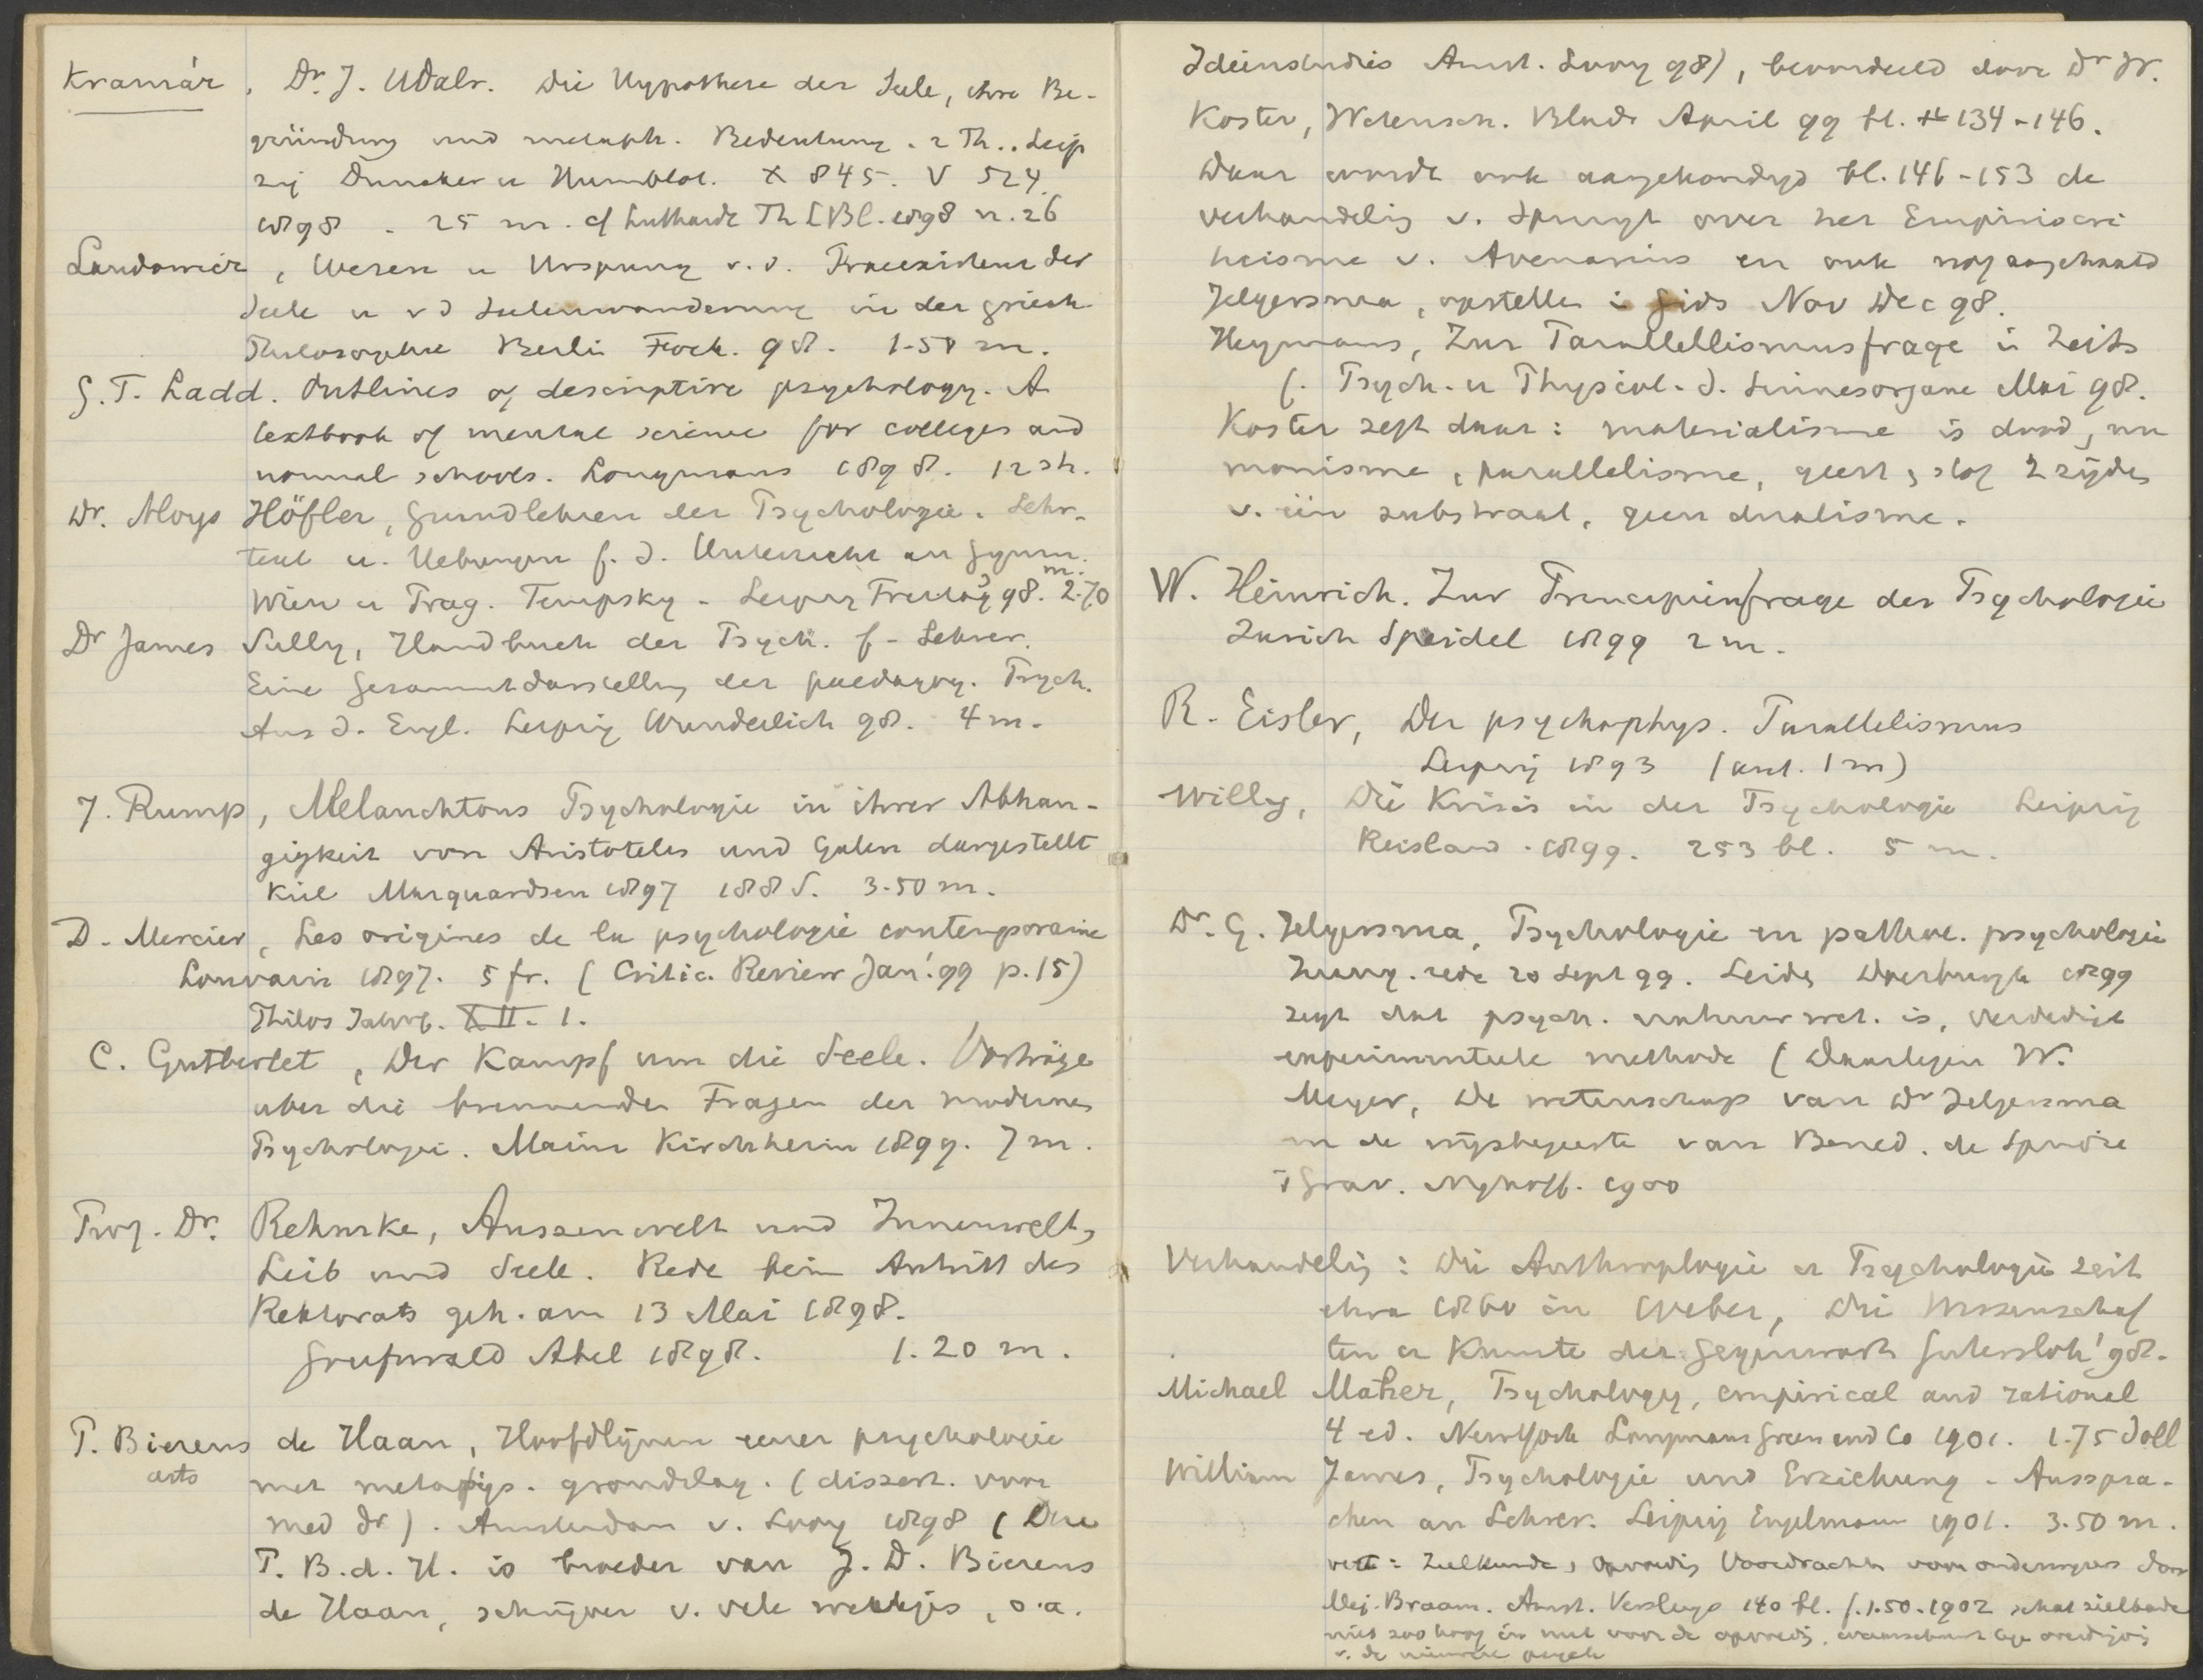 Kramár, Dr. J. Udalr. Die Hypothese der Seele, ihre Be-
gründung und metaph. Bedeutung. 2 Th.. Leip
zig Duncker u Humblot. X 845. V 524.
1898. 25 m. cf Luthardt Th LBl. 1898 n. 26
Landomér, Wesen u Ursprung v. d. Praeexistenz der
Seele u v d Seelenwanderung in der griech
Philosophie Berlin Fock. 98. 1-50 m.
G. T. Ladd. Outlines of descriptive psychology. A
textbook of mental science for colleges and
normal schools. Longmans 1898. 12 sh.
Dr. Aloys Höfler, Grundlehren der Psychologie. Lehr-
text u. Uebungen f. d. Unterricht an Gymn.
Wien u Prag. Tempsky. Leipzig Freitag 98. 2.70 m.
Dr James Sully, Handbuch der Psych. f. Lehrer.
Eine Gesammtdarstellung der paedagog. Psych.
Aus d. Engl. Leipzig Wunderlich 98. 4 m.
J. Rump, Melanchtons Psychologie in ihrer Abhan-
gigkeit von Aristoteles und Galen dargestellt
Kiel Marquardsen 1897 188 S. 3.50 m.
D. Mercier, Les origines de la psychologie contemporaine
Louvain 1897. 5 fr. (Critic. Review Jan. '99 p. 15)
Philos Jahrb. XII. 1.
C. Gutberlet, Der Kampf um die Seele. Vorträge
uber die brennenden Fragen der modernen
Psychologie. Mainz Kirchheim 1899. 7 m.
Prof. Dr. Rehmke, Aussenwelt und Innenwelt,
Leib und Seele. Rede beim Antritt des
Rektorats geh. am 13 Mai 1898.
Greifswald Abel 1898. 1.20 m.
P. Bierens de Haan, Hoofdlijnen eener psychologie
arts met metafys. grondslag. (dissert. voor
med dr). Amsterdam v. Looy 1898 (Deze
P. B. d. H. is broeder van J. D. Bierens
de Haan, schrijver v. vele werkjes, o.a.
Ideënstudies Amst. Looy 98), beoordeeld door Dr W.
Koster, Wetensch. Bladn April 99 bl. 134-146.
Daar wordt ook aangekondigd bl. 146-153 de
verhandelig v. Spruyt over het Empiriocri
ticisme v. Avenarius en ook nog aangehaald
Jelgersma, opstellen in Gids Nov Dec 98.
Heymans, Zur Parallellismusfrage in Zeits
f. Psych. u Physiol. d. Sinnesorgane Mai 98.
Koster zegt daar: materialisme is dood, nu
monisme, parallelisme, geest & stof 2 zijden
v. één substraat, geen dualisme.
W. Heinrich. Zur Principienfrage der Psychologie
Zurich Speidel 1899 2 m.
R. Eisler, Der psychophys. Parallelismus
Leipzig 1893 (ant. 1 m)
Willy, Die Krisis in der Psychologie Leipzig
Reisland. 1899. 253 bl. 5 m.
Dr. G. Jelgersma, Psychologie en pathol. psychologie
Inaug. rede 20 Sept 99. Leiden Doesburgh 1899
zegt dat psych. natuurwet. is, verdedigt
experimenteele methode (Daartegen W.
Meyer, De wetenschap van Dr Jelgersma
en de wijsbegeerte van Bened. de Spinoza
'sGrav. Nijhoff. 1900
Verhandelig: Die Anthropologie u Psychologie seit
etwa 1860 in Weber, Die Wissenschaf
ten u Kunste der Gegenwart Gutersloh '98.
Michael Maher, Psychology, empirical and rational
4 ed. New York Longmans Green and Co 1901. 1.75 doll
William James, Psychologie und Erziehung. Ansspra-
chen an Lehrer. Leipzig Engelmann 1901. 3.50 m.
vert: Zielkunde & opvoedig Voordrachten voor onderwijzers door
Mej. Braam. Amst. Versluys 140 bl. f. 1.50. 1902 schat zielkunde
niet zoo hoog in met voor de opvoedig, waarschuwt tegen overdrijvig
v. de nieuwere psych